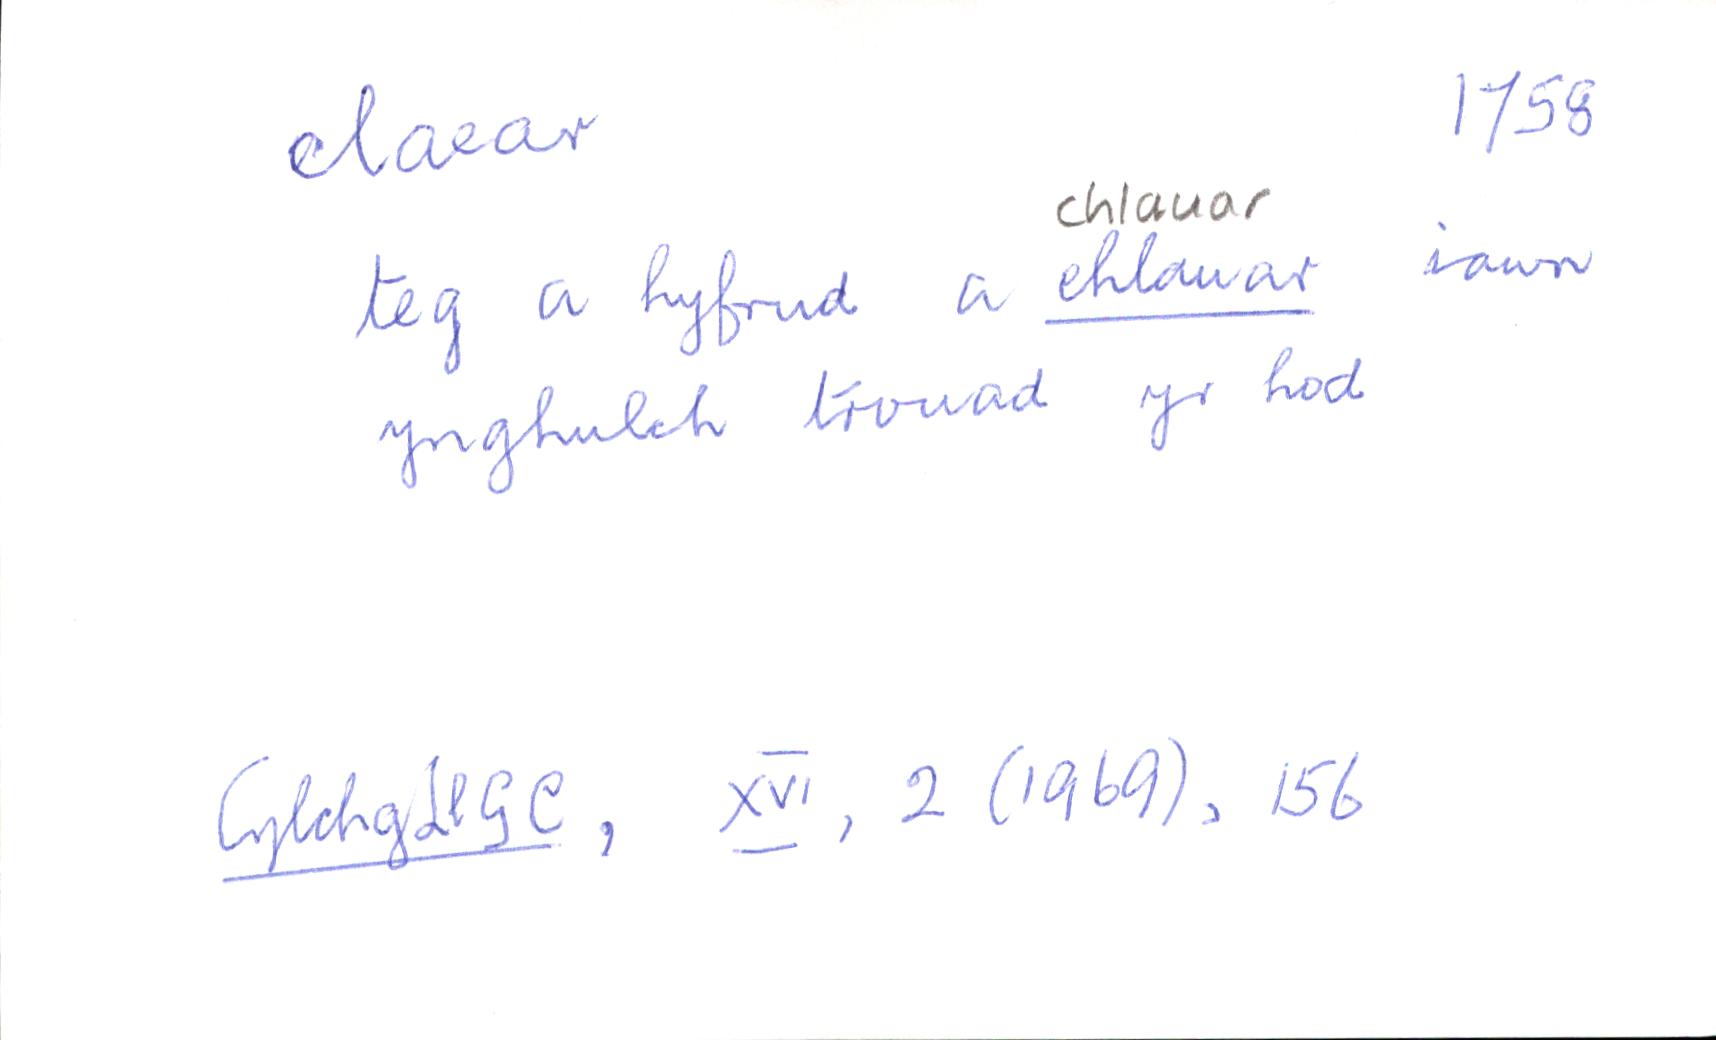 claear 1758
chlauar
teg a hyfrud a chlauar iawn
ynghulch trouad yr hod
CylchgLlGC, XVI, 2 (1969), 156